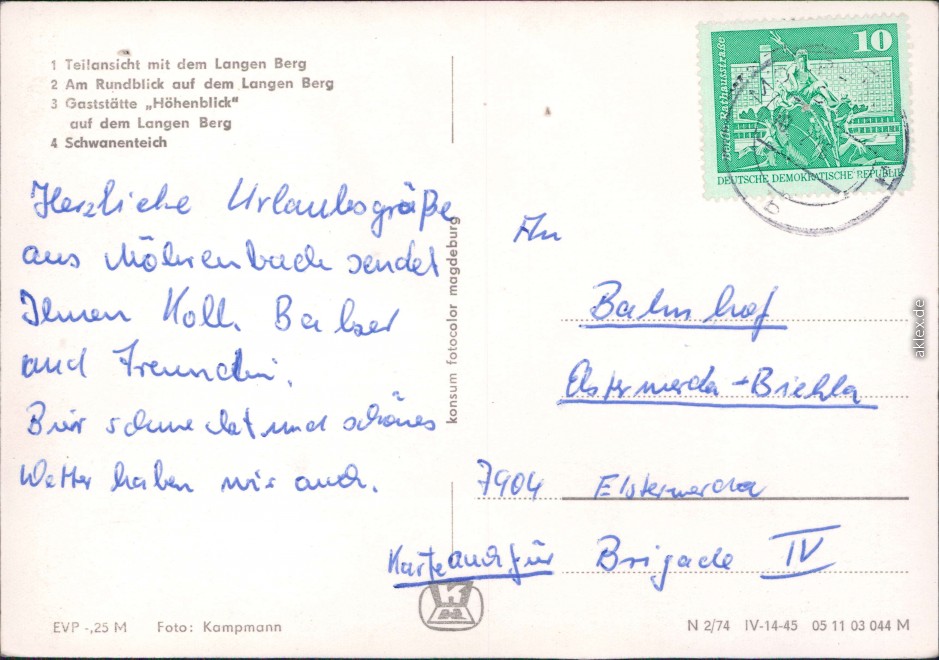 1 Teilansicht mit dem Langen Berg
2 Am Rundblick auf dem Langen Berg
3 Gaststätte „Höhenblick“
auf dem Langen Berg
4 Schwanenteich
Herzliche Urlaubsgrüße
aus Möhrenbach sendet
Ihnen Koll. Balzer
und Freundin.
Bier schmeckt und schönes
Wetter haben wir auch.
konsum fotocolor magdeburg
10
Berlin Rathausstraße
DEUTSCHE DEMOKRATISCHE REPUBLIK
An
Bahnhof
Elsterwerda-Biehla
7904 Elsterwerda
Karte auch für Brigade IV
EVP -,25 M Foto: Kampmann
N 2/74 IV-14-45 05 11 03 044 M
aklex.de